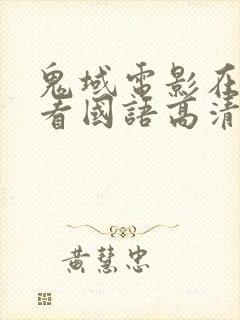 鬼域電影在
看國語高清
黃慧忠